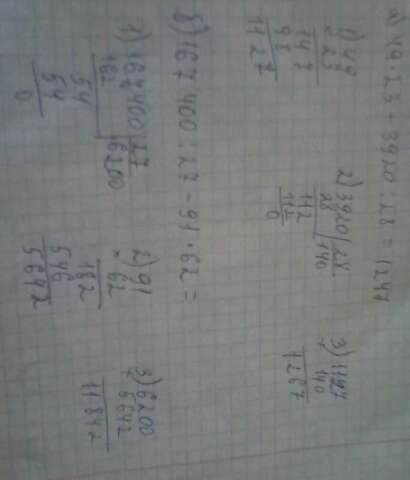 а) 49·23+3920:28=1247
1) 49
×23
147
98
1127
2) 3920 | 28
28 140
112
112
0
3) 1127
+ 140
1267
б) 167 400 : 27 - 91 · 62 =
1) 167400 | 27
162 6200
54
54
0
2) 91
× 62
182
546
5642
3) 6200
+ 5642
11842